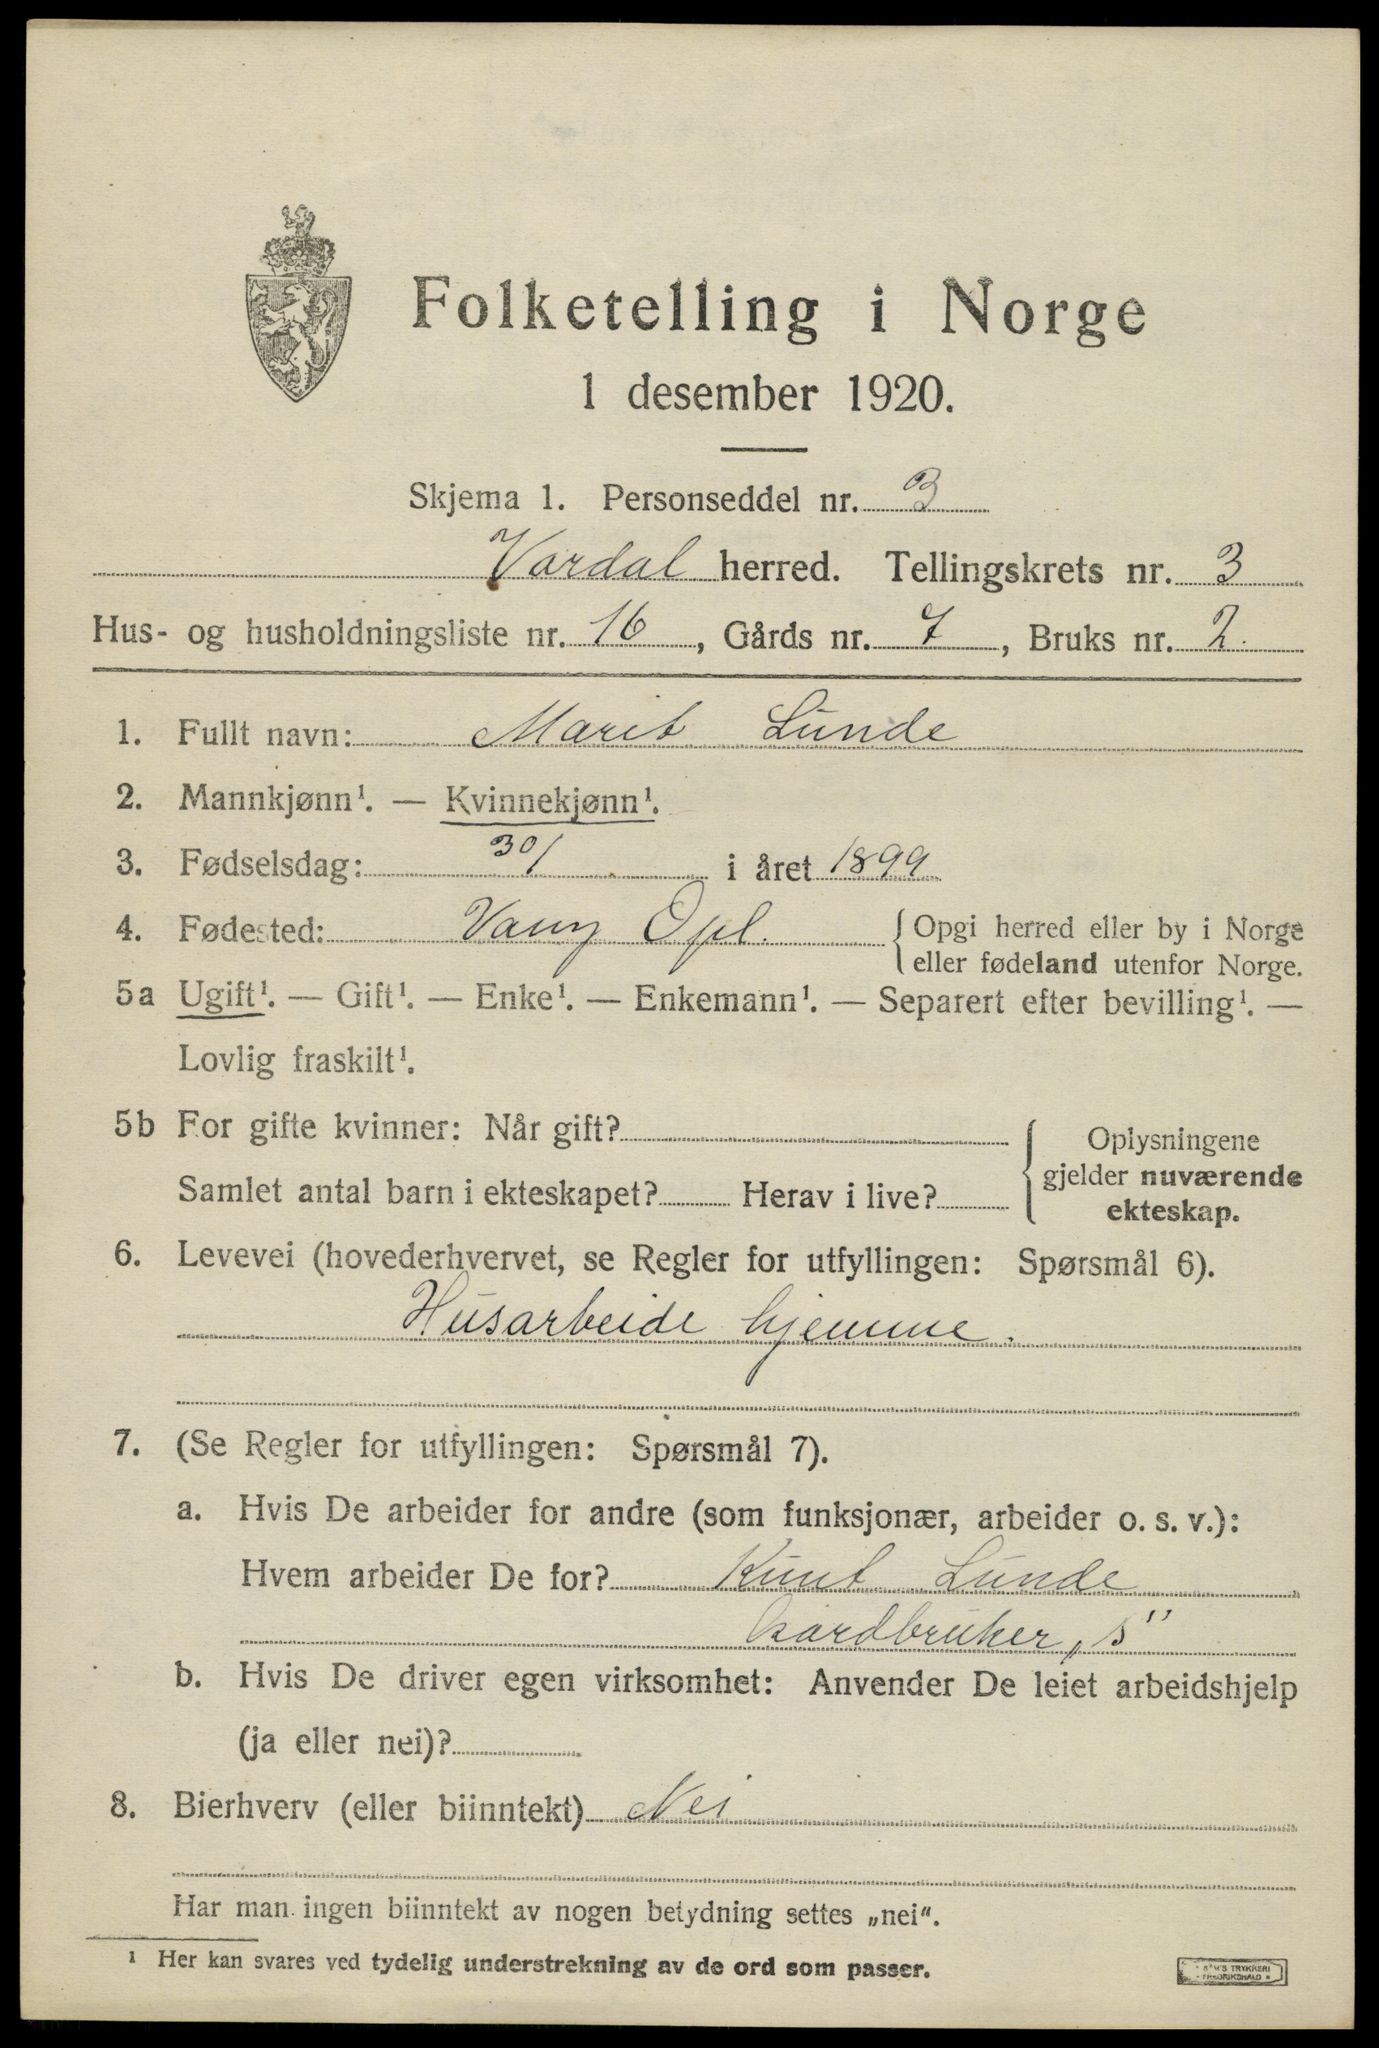 Folketelling i Norge
1 desember 1920.
Skjema 1. Personseddel nr. 3
Vardal herred. Tellingskrets nr. 3
Hus- og husholdningsliste nr. 16, Gårds nr. 7, Bruks nr. 2.
1. Fullt navn: Marit Lunde
2. Mannkjønn¹. — Kvinnekjønn¹.
3. Fødselsdag: 30/ i året 1899
4. Fødested: Vang Opl. { Opgi herred eller by i Norge
eller fødeland utenfor Norge.
5a Ugift¹. — Gift¹. — Enke¹. — Enkemann¹. — Separert efter bevilling¹. —
Lovlig fraskilt¹.
5b For gifte kvinner: Når gift?
Samlet antal barn i ekteskapet? Herav i live?
{ Oplysningene
gjelder nuværende
ekteskap.
6. Levevei (hovederhvervet, se Regler for utfyllingen: Spørsmål 6).
Husarbeide hjemme.
7. (Se Regler for utfyllingen: Spørsmål 7).
a. Hvis De arbeider for andre (som funksjonær, arbeider o. s. v.):
Hvem arbeider De for? Knut Lunde
Gardbruker „s"
b. Hvis De driver egen virksomhet: Anvender De leiet arbeidshjelp
(ja eller nei)?
8. Bierhverv (eller biinntekt) Nei
Har man ingen biinntekt av nogen betydning settes „nei“.
¹ Her kan svares ved tydelig understrekning av de ord som passer.
TRYKKERI
FREDRIKSHALD